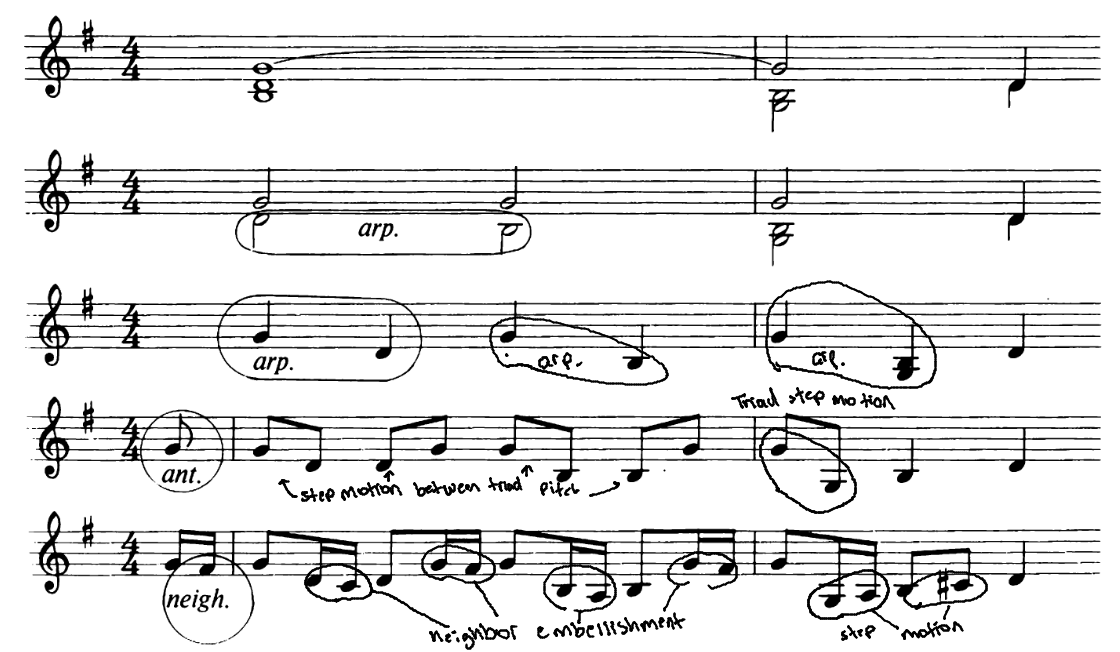 4
4
4
4
arp.
4
4
arp.
arp.
arp.
Triad step motion
4
4
ant.
step motion between triad pitch
4
4
neigh.
neighbor embellishment
step motion